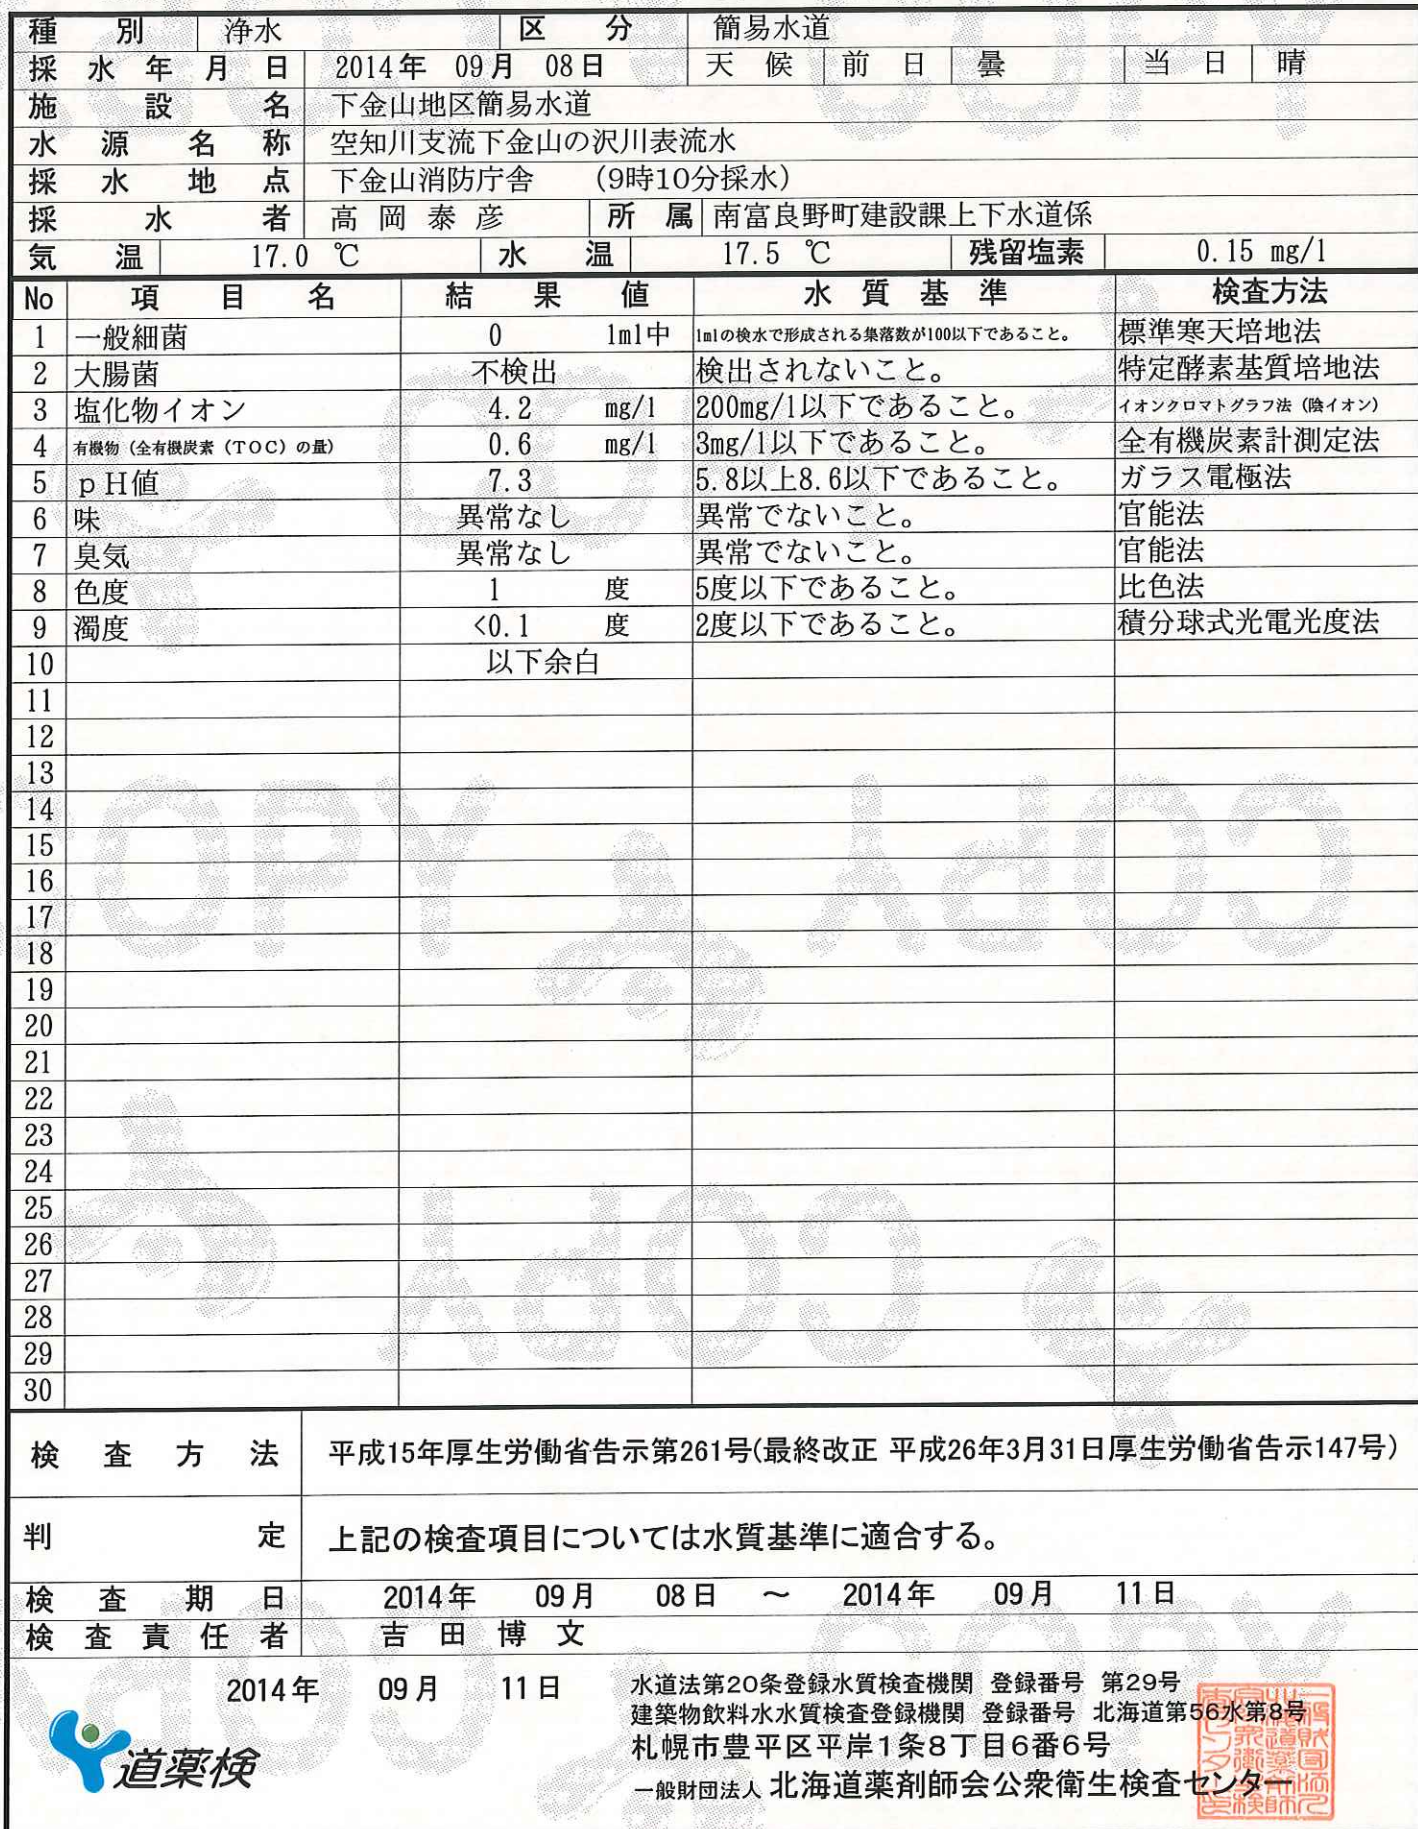 種別 浄水 区分 簡易水道
採水年月日 2014年 09月 08日 天候 前日 曇 当日 晴
施設名 下金山地区簡易水道
水源名称 空知川支流下金山の沢川表流水
採水地点 下金山消防庁舎 (9時10分採水)
採水者 高岡泰彦 所属 南富良野町建設課上下水道係
気温 17.0 ℃ 水温 17.5 ℃ 残留塩素 0.15 mg/l
No 項目名 結果値 水質基準 検査方法
1 一般細菌 0 1ml中 1mlの検水で形成される集落数が100以下であること。 標準寒天培地法
2 大腸菌 不検出 検出されないこと。 特定酵素基質培地法
3 塩化物イオン 4.2 mg/l 200mg/l以下であること。 イオンクロマトグラフ法(陰イオン)
4 有機物(全有機炭素(TOC)の量) 0.6 mg/l 3mg/l以下であること。 全有機炭素計測定法
5 pH値 7.3 5.8以上8.6以下であること。 ガラス電極法
6 味 異常なし 異常でないこと。 官能法
7 臭気 異常なし 異常でないこと。 官能法
8 色度 1 度 5度以下であること。 比色法
9 濁度 <0.1 度 2度以下であること。 積分球式光電光度法
10 以下余白
11
12
13
14
15
16
17
18
19
20
21
22
23
24
25
26
27
28
29
30
検査方法 平成15年厚生労働省告示第261号(最終改正 平成26年3月31日厚生労働省告示147号)
判定 上記の検査項目については水質基準に適合する。
検査期日 2014年 09月 08日 ～ 2014年 09月 11日
検査責任者 吉田博文
2014年 09月 11日
水道法第20条登録水質検査機関 登録番号 第29号
建築物飲料水水質検査登録機関 登録番号 北海道第56水第8号
札幌市豊平区平岸1条8丁目6番6号
一般財団法人 北海道薬剤師会公衆衛生検査センター
道薬検
COPY
COPY
COPY
COPY
COPY
COPY
COPY